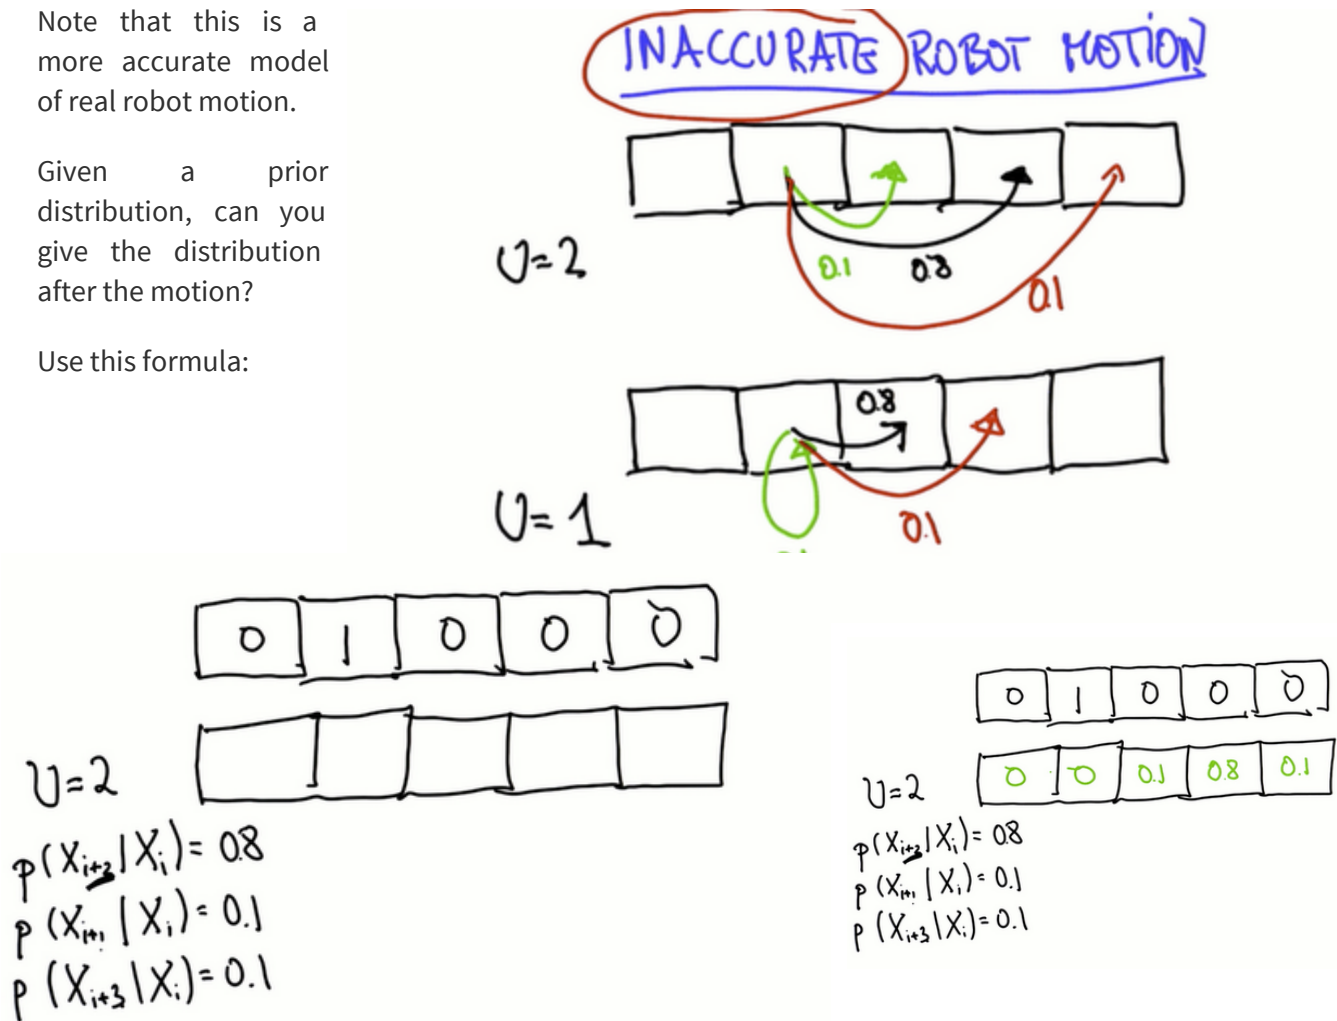 Note that this is a
more accurate model
of real robot motion.
Given a prior
distribution, can you
give the distribution
after the motion?
Use this formula:
INACCURATE ROBOT MOTION
U=2
0.1 0.8 0.1
0.8
U=1
0.1
0 1 0 0 0
U=2
p(X_{i+2}|X_i)=0.8
p(X_{i+1}|X_i)=0.1
p(X_{i+3}|X_i)=0.1
0 1 0 0 0
0 0 0.1 0.8 0.1
U=2
p(X_{i+2}|X_i)=0.8
p(X_{i+1}|X_i)=0.1
p(X_{i+3}|X_i)=0.1